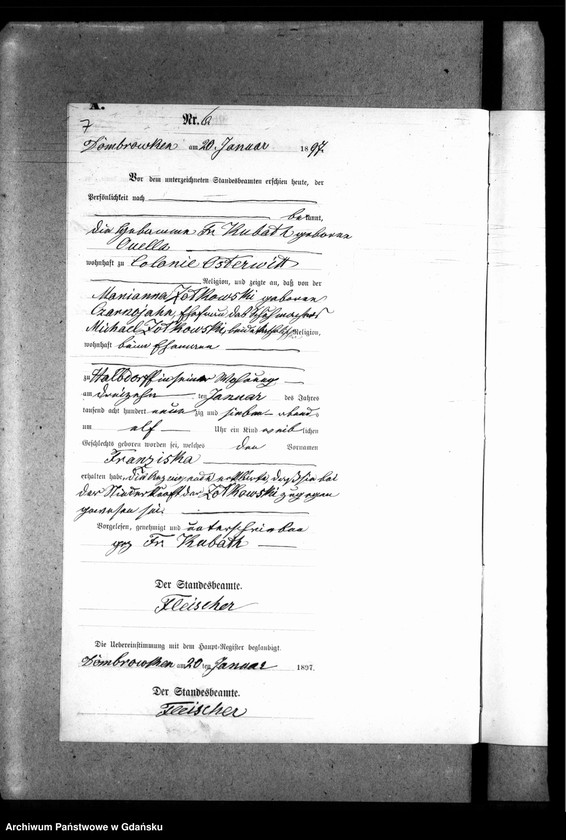 A.
7
Nr. 6
Dombrowken am 20 Januar 1897.
Vor dem unterzeichneten Standesbeamten erschien heute, der
Persönlichkeit nach
bekannt,
die Hebamme Fr. Kubath geborene
Quella
wohnhaft zu Colonie Osterwitt
Religion, und zeigte an, daß von der
Marianna Zolkowski geborene
Czarnojahn, Ehefrau des
Michael Zolkowski, beide katholisch Religion,
wohnhaft beim Ehemann
zu Halbdorf in seiner Wohnung
am dreizehn ten Januar des Jahres
tausend acht hundert neun zig und sieben abends
um elf Uhr ein Kind weib lichen
Geschlechts geboren worden sei, welches den Vornamen
Franziska
erhalten habe, die Anzeigende erklärte, daß sie bei
der Niederkunft der Zolkowski zugegen
gewesen sei.
Vorgelesen, genehmigt und unterschrieben
gez Fr. Kubath
Der Standesbeamte.
Fleischer
Die Uebereinstimmung mit dem Haupt-Register beglaubigt.
Dombrowken am 20 ten Januar 1897.
Der Standesbeamte.
Fleischer
Archiwum Państwowe w Gdańsku